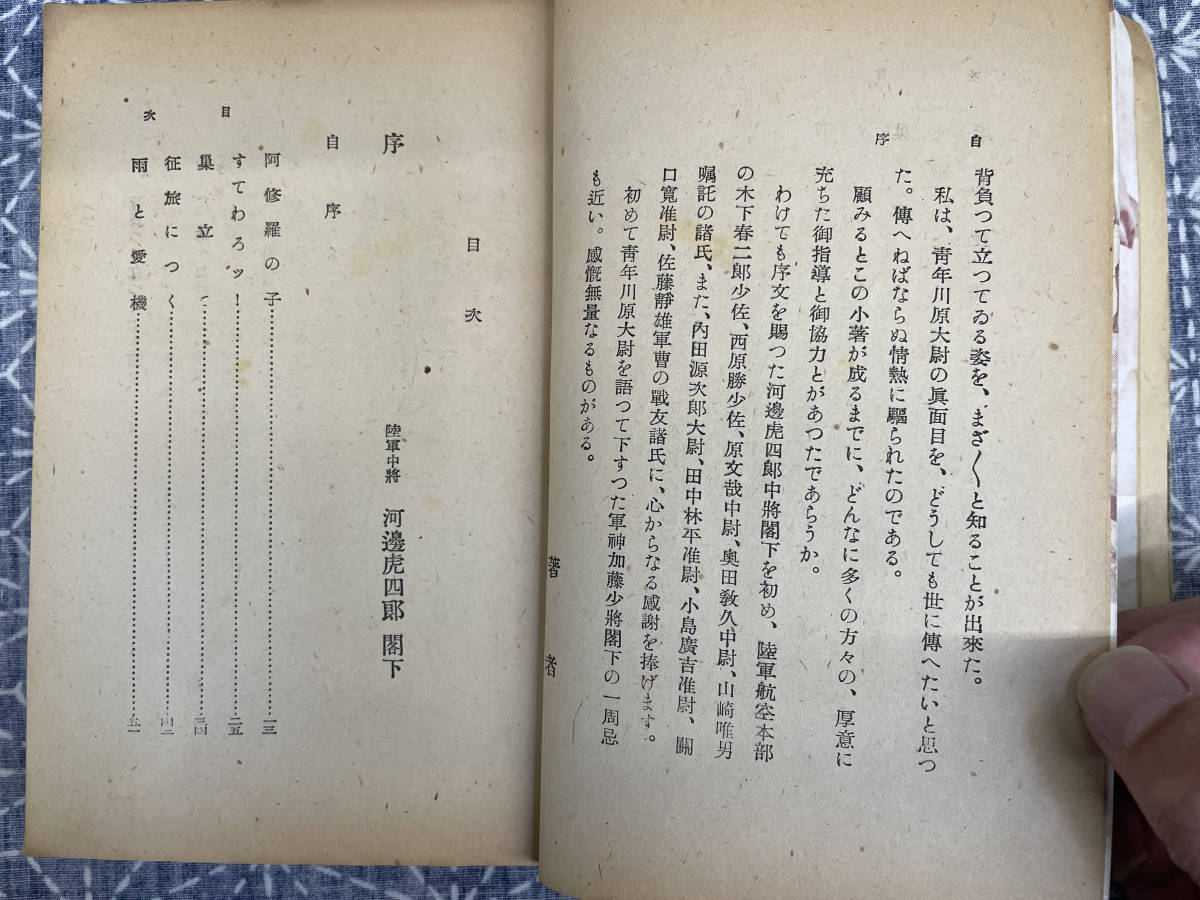 自序
背負つて立つてゐる姿を、まざ〳〵と知ることが出來た。
私は、靑年川原大尉の眞面目を、どうしても世に傳へたいと思つ
た。傳へねばならぬ情熱に驅られたのである。
顧みるとこの小著が成るまでに、どんなに多くの方々の、厚意に
充ちた御指導と御協力とがあつたであらうか。
わけても序文を賜つた河邊虎四郎中將閣下を初め、陸軍航空本部
の木下春二郎少佐、西原勝少佐、原文哉中尉、奥田敎久中尉、山崎唯男
囑託の諸氏、また、內田源次郎大尉、田中林平准尉、小島廣吉准尉、關
口寬准尉、佐藤靜雄軍曹の戰友諸氏に、心からなる感謝を捧げます。
初めて靑年川原大尉を語つて下すつた軍神加藤少將閣下の一周忌
も近い。感慨無量なるものがある。
著者
目次
序 陸軍中將 河邊虎四郎 閣下
自序
阿修羅の子……………………一三
すてわろッ！……………………二五
巢立つ……………………三四
征旅につく……………………四二
雨と愛機……………………五一
目次